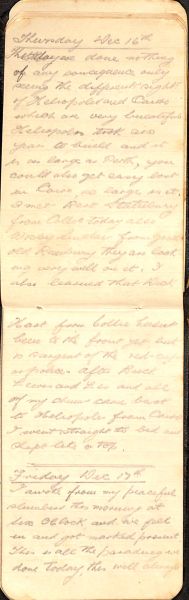 Thursday Dec 16th
done nothing
of any consequence only
seeing the different sight
of Heliopolis and Cairo
which are very beautiful
Heliopolis took six
years to build and it
is as large as Perth, you
could also get easy lost
in Cairo as large as it.
I met Bert
from Collie today also
from good
old Bunbury they are look
ing very well on it. I
also learned that Dick
Hart from Collie hasent
been to the front yet but
is sargent of the red-cap
or police. After
and I and all
of my chums came back
to Heliopolis from Cairo
I went straight to bed and
slept like a top.
Friday Dec 17th
I awoke from my peaceful
slumbers this morning at
six oclock and we fell
in and got marked present
This is all the parading we
done today, this will always